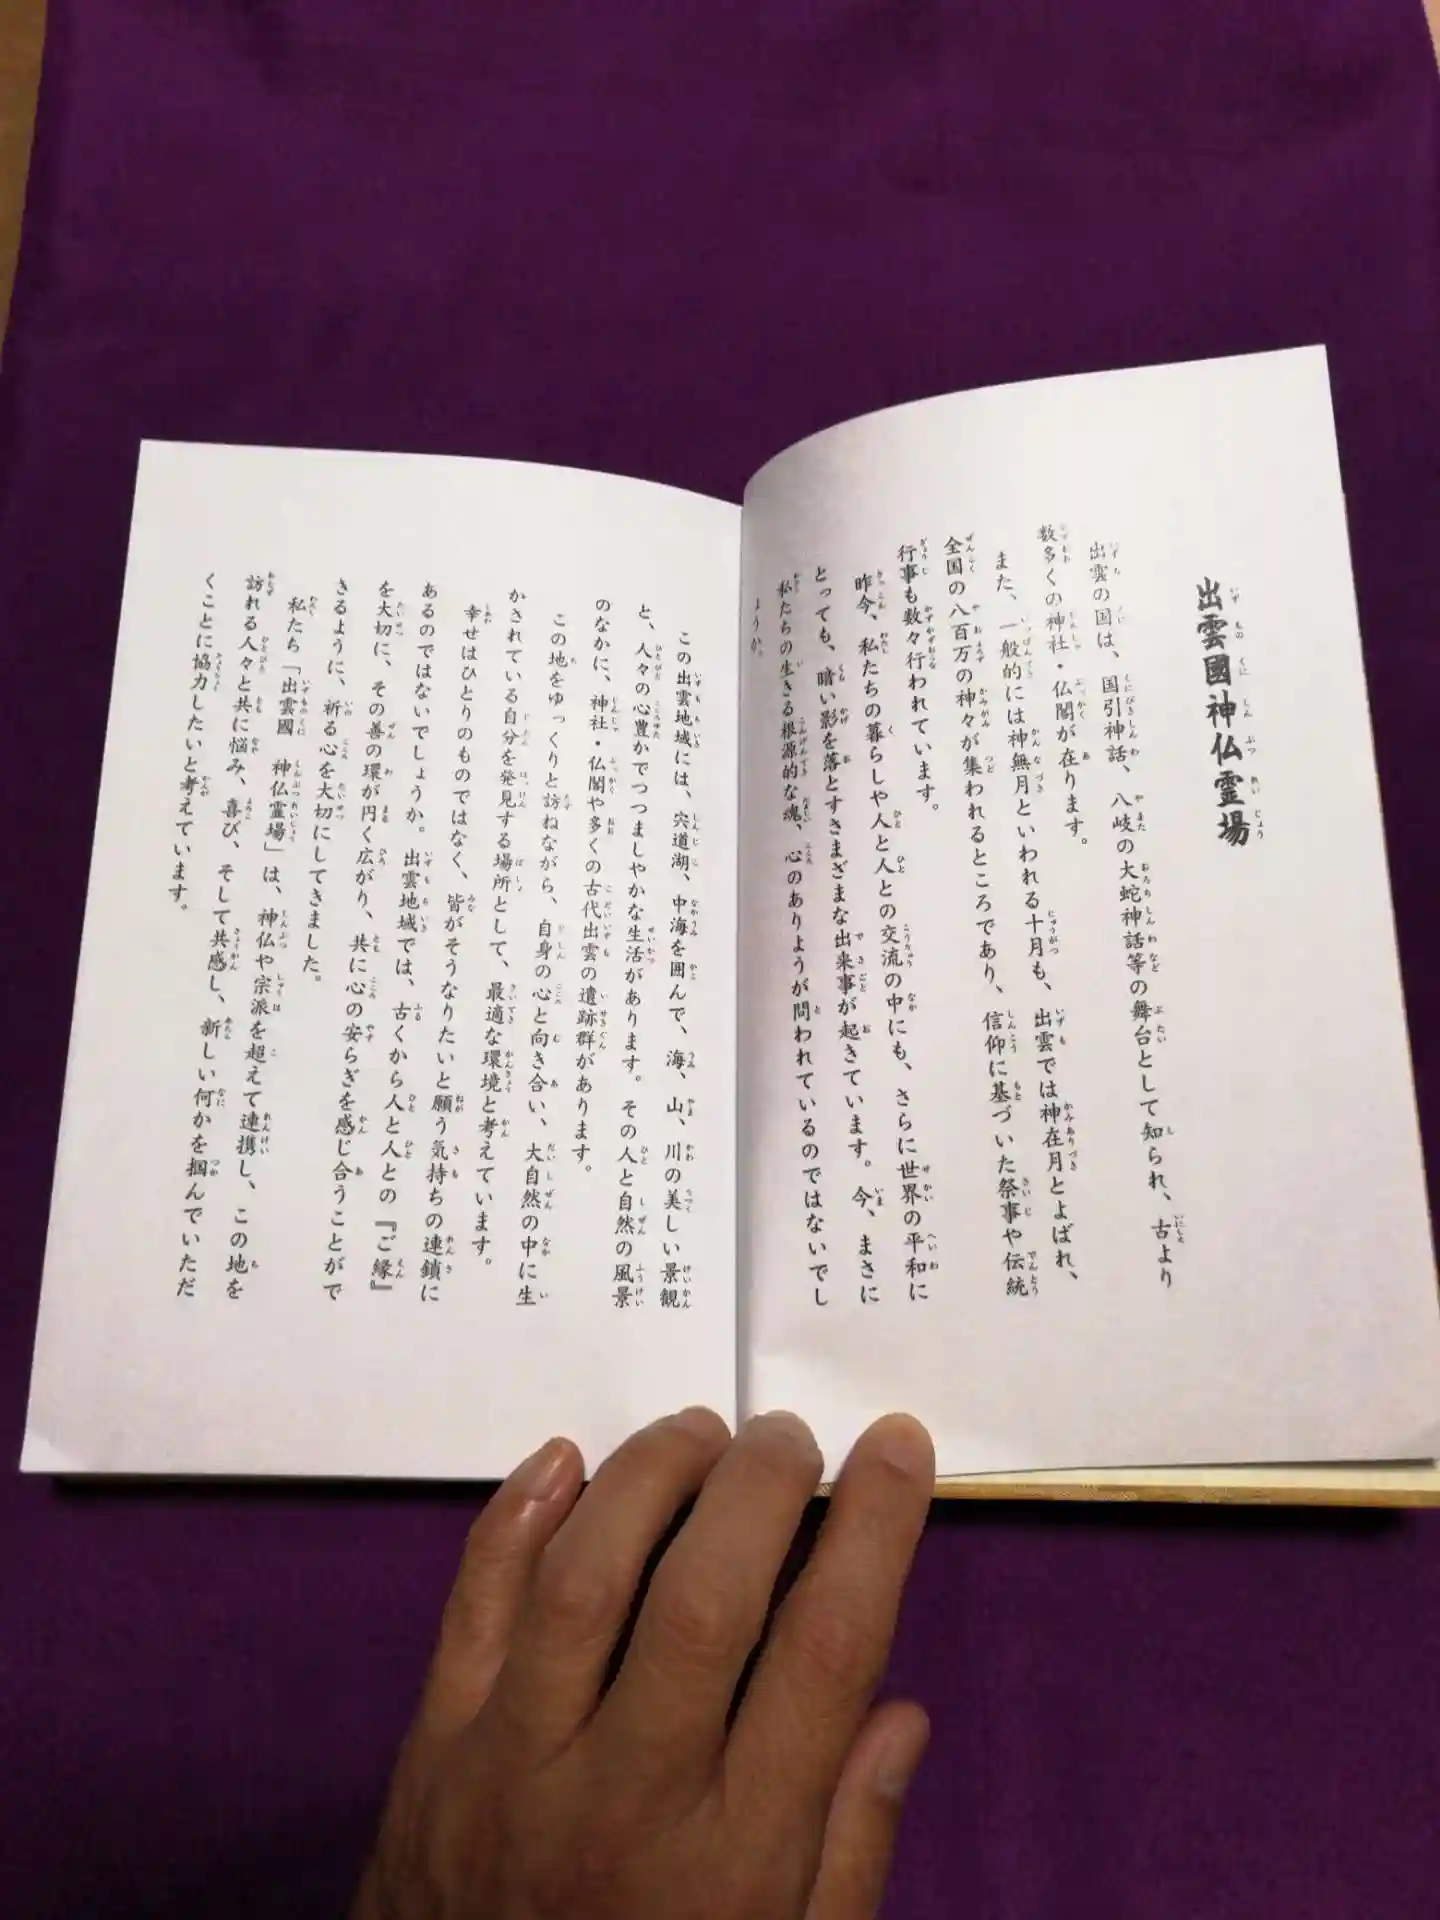 出雲國神仏霊場
出雲の国は、国引神話、八岐の大蛇神話等の舞台として知られ、古より
数多くの神社・仏閣が在ります。
また、一般的には神無月といわれる十月も、出雲では神在月とよばれ、
全国の八百万の神々が集われるところであり、信仰に基づいた祭事や伝統
行事も数々行われています。
昨今、私たちの暮らしや人と人との交流の中にも、さらに世界の平和に
とっても、暗い影を落とすさまざまな出来事が起きています。今、まさに
私たちの生きる根源的な魂、心のありようが問われているのではないでし
ょうか。
この出雲地域には、宍道湖、中海を囲んで、海、山、川の美しい景観
と、人々の心豊かでつつましやかな生活があります。その人と自然の風景
のなかに、神社・仏閣や多くの古代出雲の遺跡群があります。
この地をゆっくりと訪ねながら、自身の心と向き合い、大自然の中に生
かされている自分を発見する場所として、最適な環境と考えています。
幸せはひとりのものではなく、皆がそうなりたいと願う気持ちの連鎖に
あるのではないでしょうか。出雲地域では、古くから人と人との『ご縁』
を大切に、その善の環が円く広がり、共に心の安らぎを感じ合うことがで
きるように、祈る心を大切にしてきました。
私たち「出雲國 神仏霊場」は、神仏や宗派を超えて連携し、この地を
訪れる人々と共に悩み、喜び、そして共感し、新しい何かを掴んでいただ
くことに協力したいと考えています。